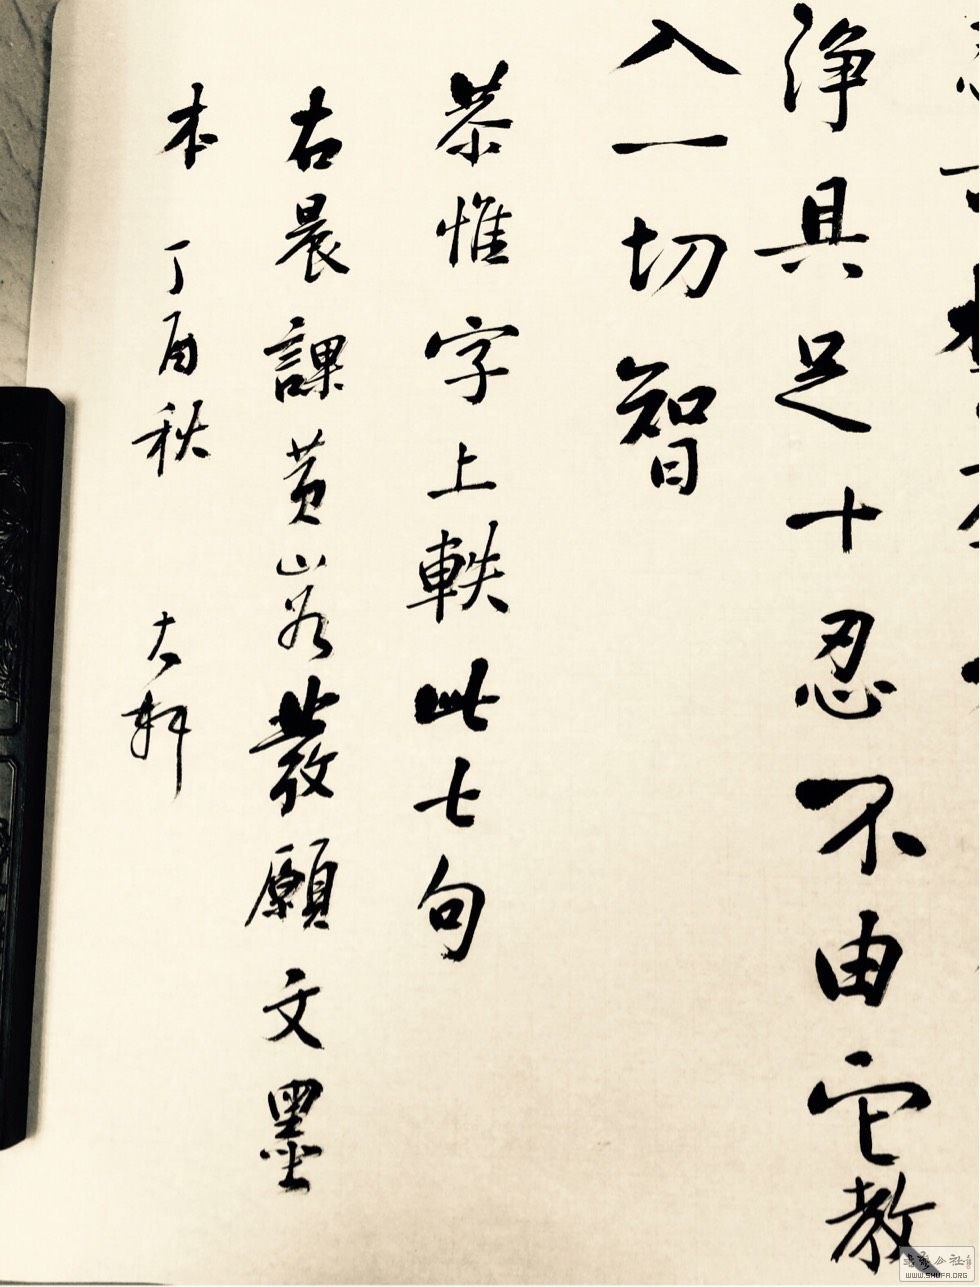 淨具足十忍不由它教
入一切智
恭惟字上軼此七句
右晨課黃山谷發願文墨
本 丁酉秋 大軒
WWW.SHUFA.ORG